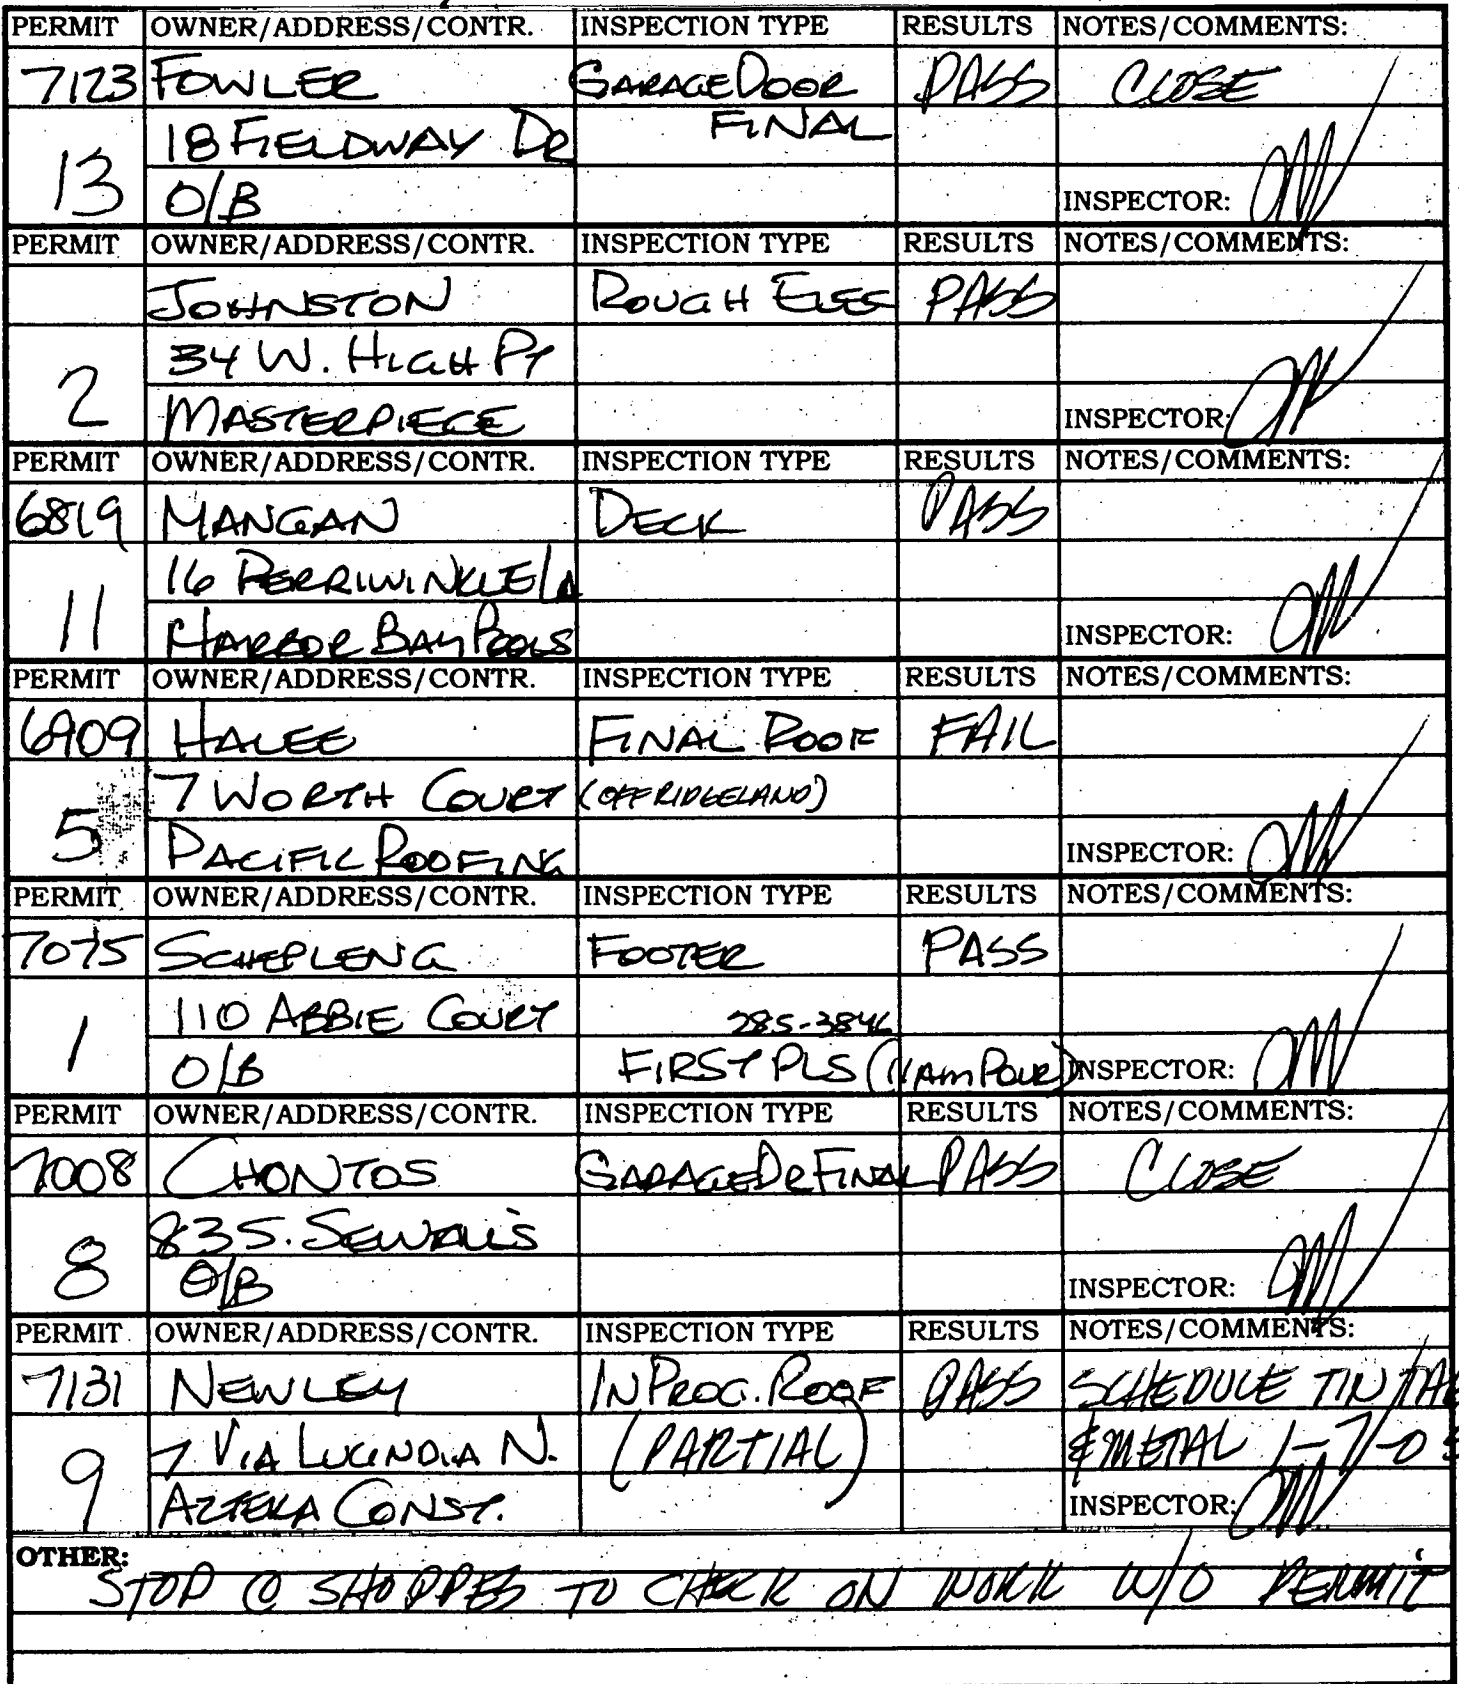 PERMIT OWNER/ADDRESS/CONTR. INSPECTION TYPE RESULTS NOTES/COMMENTS:
7123 FOWLER GARAGE DOOR PASS CLOSE
18 FIELDWAY DR FINAL
13 O/B INSPECTOR:
PERMIT OWNER/ADDRESS/CONTR. INSPECTION TYPE RESULTS NOTES/COMMENTS:
JOHNSTON ROUGH ELEC PASS
34 W. HIGH PT
2 MASTERPIECE INSPECTOR:
PERMIT OWNER/ADDRESS/CONTR. INSPECTION TYPE RESULTS NOTES/COMMENTS:
6819 MANGAN DECK PASS
16 PERRIWINKLE LA
11 HARBOR BAY POOLS INSPECTOR:
PERMIT OWNER/ADDRESS/CONTR. INSPECTION TYPE RESULTS NOTES/COMMENTS:
6909 HALEE FINAL ROOF FAIL
7 WORTH COURT (OFF RIDGELAND)
5 PACIFIC ROOFING INSPECTOR:
PERMIT OWNER/ADDRESS/CONTR. INSPECTION TYPE RESULTS NOTES/COMMENTS:
7075 SCHEPLENG FOOTER PASS
110 ABBIE COURT 285-3846
1 O/B FIRST PLS (11AM POUR) INSPECTOR:
PERMIT OWNER/ADDRESS/CONTR. INSPECTION TYPE RESULTS NOTES/COMMENTS:
7008 CHONTOS GARAGE DR FINAL PASS CLOSE
83 S. SEWALL'S
8 O/B INSPECTOR:
PERMIT OWNER/ADDRESS/CONTR. INSPECTION TYPE RESULTS NOTES/COMMENTS:
7131 NEWLEY IN PROG. ROOF PASS SCHEDULE TIN TAG
7 VIA LUCINDIA N. (PARTIAL) & METAL 1-7-05
9 AZTEKA CONST. INSPECTOR:
OTHER:
STOP @ SHOPPES TO CHECK ON WORK W/O PERMIT